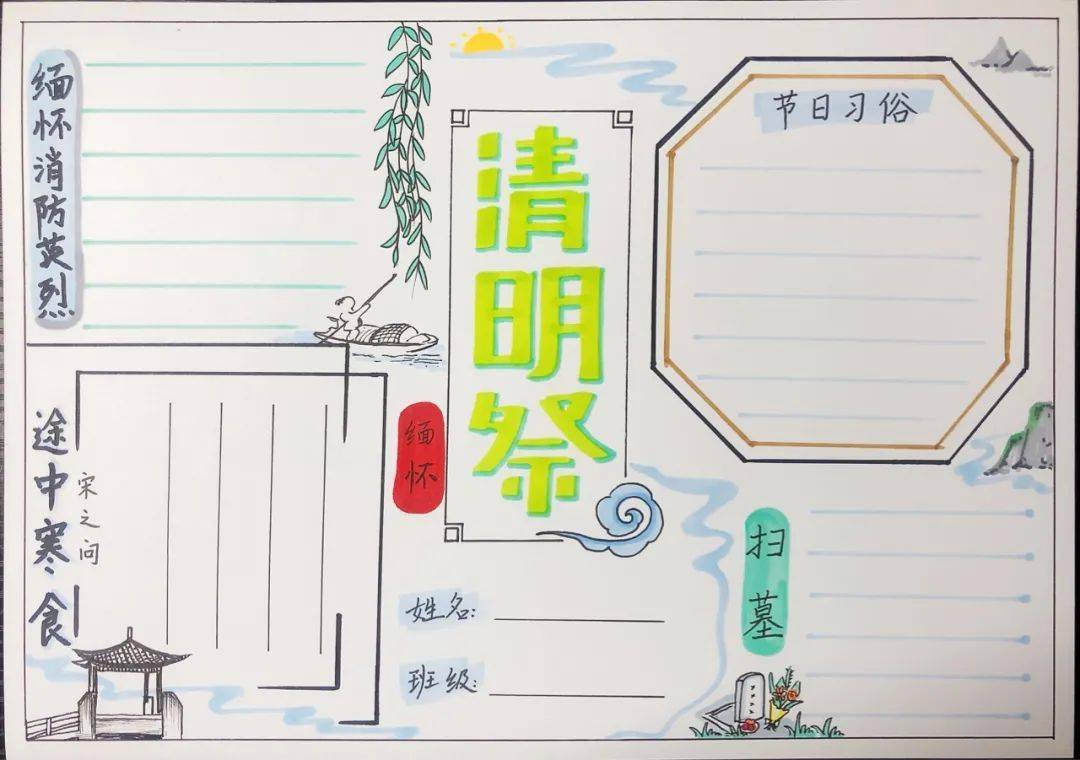 缅怀消防英烈
清明祭
缅怀
节日习俗
途中寒食
宋之问
姓名:
班级:
扫墓